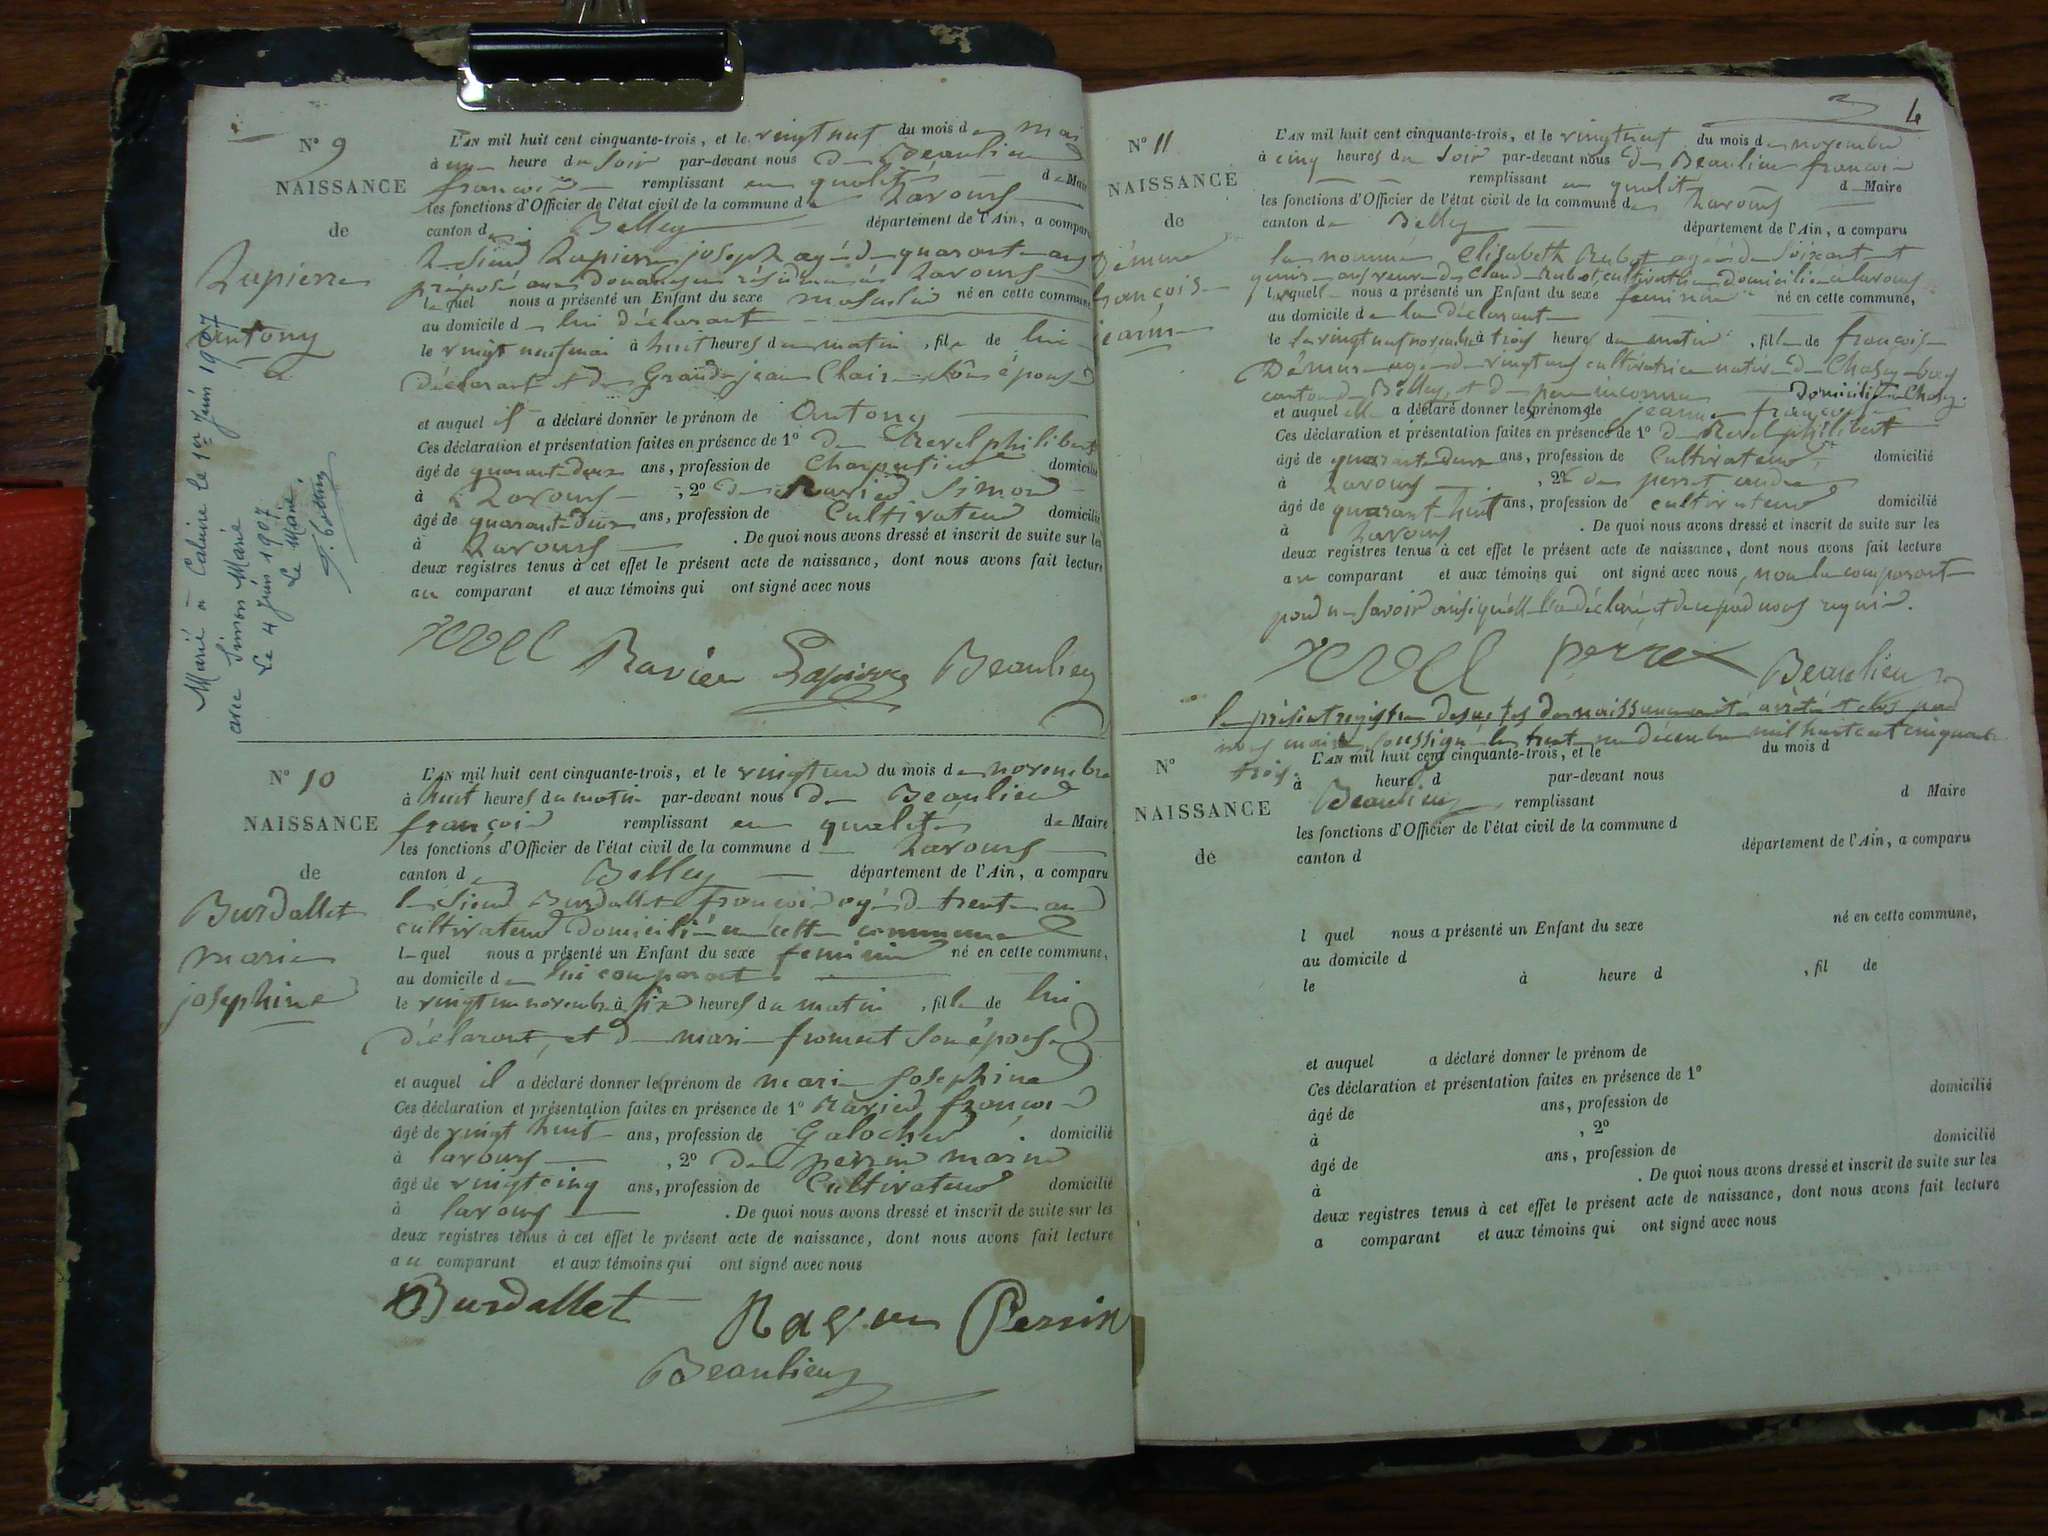 N° 9
NAISSANCE
de
Lapierre
antony
Marié à Caluire le 1er Juin 1907
avec Simon Marie
Le 4 Juin 1907
Le Maire,
L'AN mil huit cent cinquante-trois, et le vingt neuf du mois de mai
à une heure du soir par-devant nous de Beaulieu
françois remplissant en qualité de Maire
les fonctions d'Officier de l'état civil de la commune de Lavours
canton de Belley département de l'Ain, a comparu
le sieur Lapierre joseph agé de quarante ans
préposé aux douanes en résidence à Lavours
lequel nous a présenté un Enfant du sexe masculin né en cette commune
au domicile de lui déclarant
le vingt neuf mai à huit heures du matin, fils de lui
déclarant et de Grandjean Claire son épouse
et auquel il a déclaré donner le prénom de Antony
Ces déclaration et présentation faites en présence de 1° de Revel philibert
âgé de quarante deux ans, profession de Charpentier domicilié
à Lavours, 2° de Ravier Simon
âgé de quarante deux ans, profession de Cultivateur domicilié
à Lavours . De quoi nous avons dressé et inscrit de suite sur les
deux registres tenus à cet effet le présent acte de naissance, dont nous avons fait lecture
au comparant et aux témoins qui ont signé avec nous
revel Ravier Lapierre Beaulieu
N° 10
NAISSANCE
de
Burdallet
marie
josephine
L'AN mil huit cent cinquante-trois, et le vingt un du mois de novembre
à huit heures du matin par-devant nous de Beaulieu
françois remplissant en qualité de Maire
les fonctions d'Officier de l'état civil de la commune d Lavours
canton de Belley département de l'Ain, a comparu
le sieur Burdallet françois agé de trente ans
cultivateur domicilié en cette commune
lequel nous a présenté un Enfant du sexe feminin né en cette commune,
au domicile de lui comparant
le vingt un novembre à six heures du matin, fille de lui
déclarant, et de marie froment son épouse
et auquel il a déclaré donner le prénom de marie Josephine
Ces déclaration et présentation faites en présence de 1° Ravier françois
âgé de vingt huit ans, profession de Galochier domicilié
à lavours, 2° de perrin marin
âgé de vingt cinq ans, profession de Cultivateur domicilié
à lavours . De quoi nous avons dressé et inscrit de suite sur les
deux registres tenus à cet effet le présent acte de naissance, dont nous avons fait lecture
au comparant et aux témoins qui ont signé avec nous
Burdallet Ravier Perrin
Beaulieu
4
N° 11
NAISSANCE
de
Démure
françoise
jeanne
L'AN mil huit cent cinquante-trois, et le vingt neuf du mois de novembre
à cinq heures du soir par-devant nous de Beaulieu françois
remplissant en qualité de Maire
les fonctions d'Officier de l'état civil de la commune de Lavours
canton de Belley département de l'Ain, a comparu
la nommée Elisabeth Rubot agée de soixante et
quinze ans veuve de Claude Rubot, cultivatrice domiciliée à lavours
laquelle nous a présenté un Enfant du sexe feminin né en cette commune,
au domicile de la déclarante
le le vingt neuf novembre à trois heures du matin, fille de françoise
Démure agée de vingt ans cultivatrice native de Chasey-bons
canton de Belley, et de père inconnu domiciliée à Chasey.
et auquel elle a déclaré donner le prénom de jeanne françoise
Ces déclaration et présentation faites en présence de 1° de Revel philibert
âgé de quarante deux ans, profession de Cultivateur domicilié
à Lavours, 2° de perret andré
âgé de quarante huit ans, profession de cultivateur domicilié
à Lavours . De quoi nous avons dressé et inscrit de suite sur les
deux registres tenus à cet effet le présent acte de naissance, dont nous avons fait lecture
au comparant et aux témoins qui ont signé avec nous, non la comparante
pour ne savoir ainsi qu'elle l'a déclaré, et de ce par nous requis.
revel perret Beaulieu
le présent registre des actes de naissance a été arrêté et clos par
nous maire soussigné le trente un décembre mil huit cent cinquante
trois.
Beaulieu
N°
NAISSANCE
de
L'AN mil huit cent cinquante-trois, et le du mois d
à heure d par-devant nous
remplissant d Maire
les fonctions d'Officier de l'état civil de la commune d
canton d département de l'Ain, a comparu
l quel nous a présenté un Enfant du sexe né en cette commune,
au domicile d
le à heure d , fil de
et auquel a déclaré donner le prénom de
Ces déclaration et présentation faites en présence de 1°
âgé de ans, profession de domicilié
à , 2°
âgé de ans, profession de domicilié
à . De quoi nous avons dressé et inscrit de suite sur les
deux registres tenus à cet effet le présent acte de naissance, dont nous avons fait lecture
a comparant et aux témoins qui ont signé avec nous